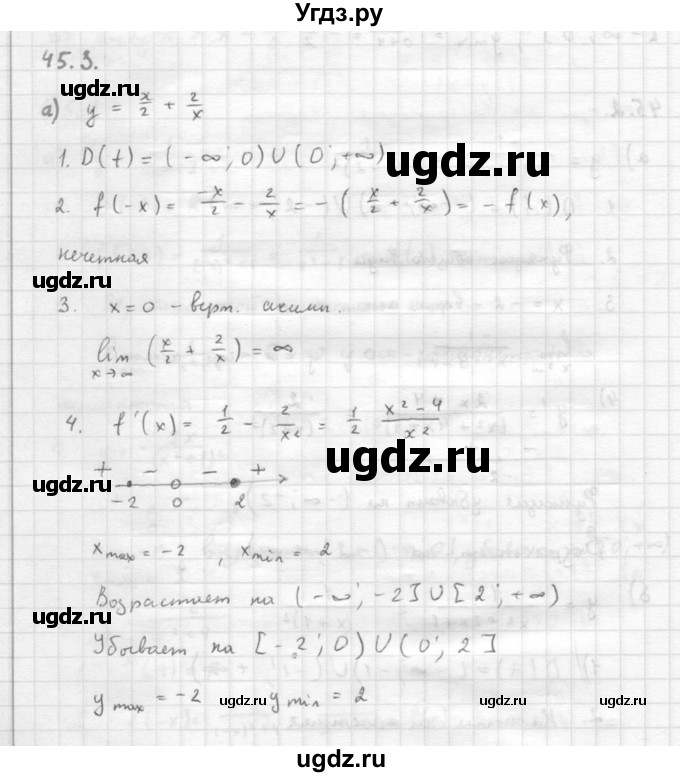 Угдз.ру
45.3.
а) y = x/2 + 2/x
1. D(f) = (-∞; 0) U (0; +∞)
ugdz.ru
2. f(-x) = -x/2 - 2/x = -(x/2 + 2/x) = -f(x),
нечетная
ugdz.ru
3. x = 0 - верт. асимп.
lim x→∞ (x/2 + 2/x) = ∞
4. f'(x) = 1/2 - 2/x² = 1/2 x² - 4/x²
ugdz.ru
+ - - +
ugdz.ru
-2 0 2
x max = -2, x min = 2
Возрастает на (-∞; -2] U [2; +∞)
ugdz.ru
Убывает на [-2; 0) U (0; 2]
y max = -2 y min = 2
ugdz.ru ugdz.ru ugdz.ru
ugdz.ru
ugdz.ru